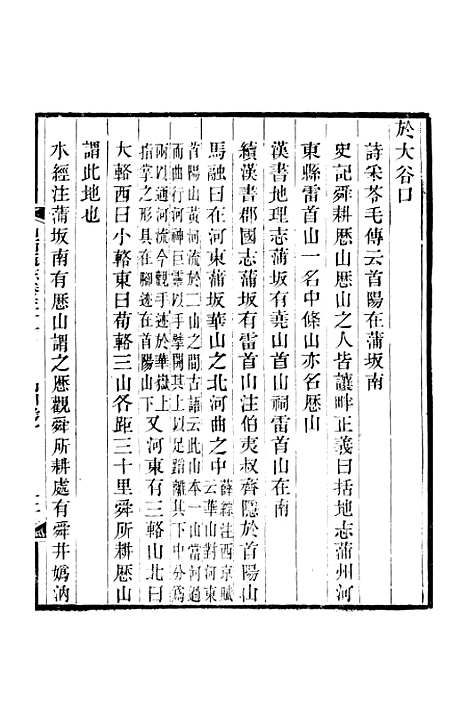 於大谷口
詩采苓毛傳云首陽在蒲坂南
史記舜耕歷山歷山之人皆讓畔正義曰括地志蒲州河
東縣雷首山一名中條山亦名歷山
漢書地理志蒲坂有堯山首山祠雷首山在南
續漢書郡國志蒲坂有雷首山注伯夷叔齊隱於首陽山
馬融曰在河東蒲坂華山之北河曲之中薛綜注西京賦
云華山對河東
首陽山黃河流於二山之間古語云此山本一山當河過
而曲行河神巨靈以手擘開其上以足蹈離其下中分爲
兩以通河流今觀手迹於華嶽上
指掌之形具在腳迹在首陽山下又河東有三輅山北曰
大輅西曰小輅東曰荀輅三山各距三十里舜所耕歷山
謂此地也
水經注蒲坂南有歷山謂之歷觀舜所耕處有舜井嬀汭